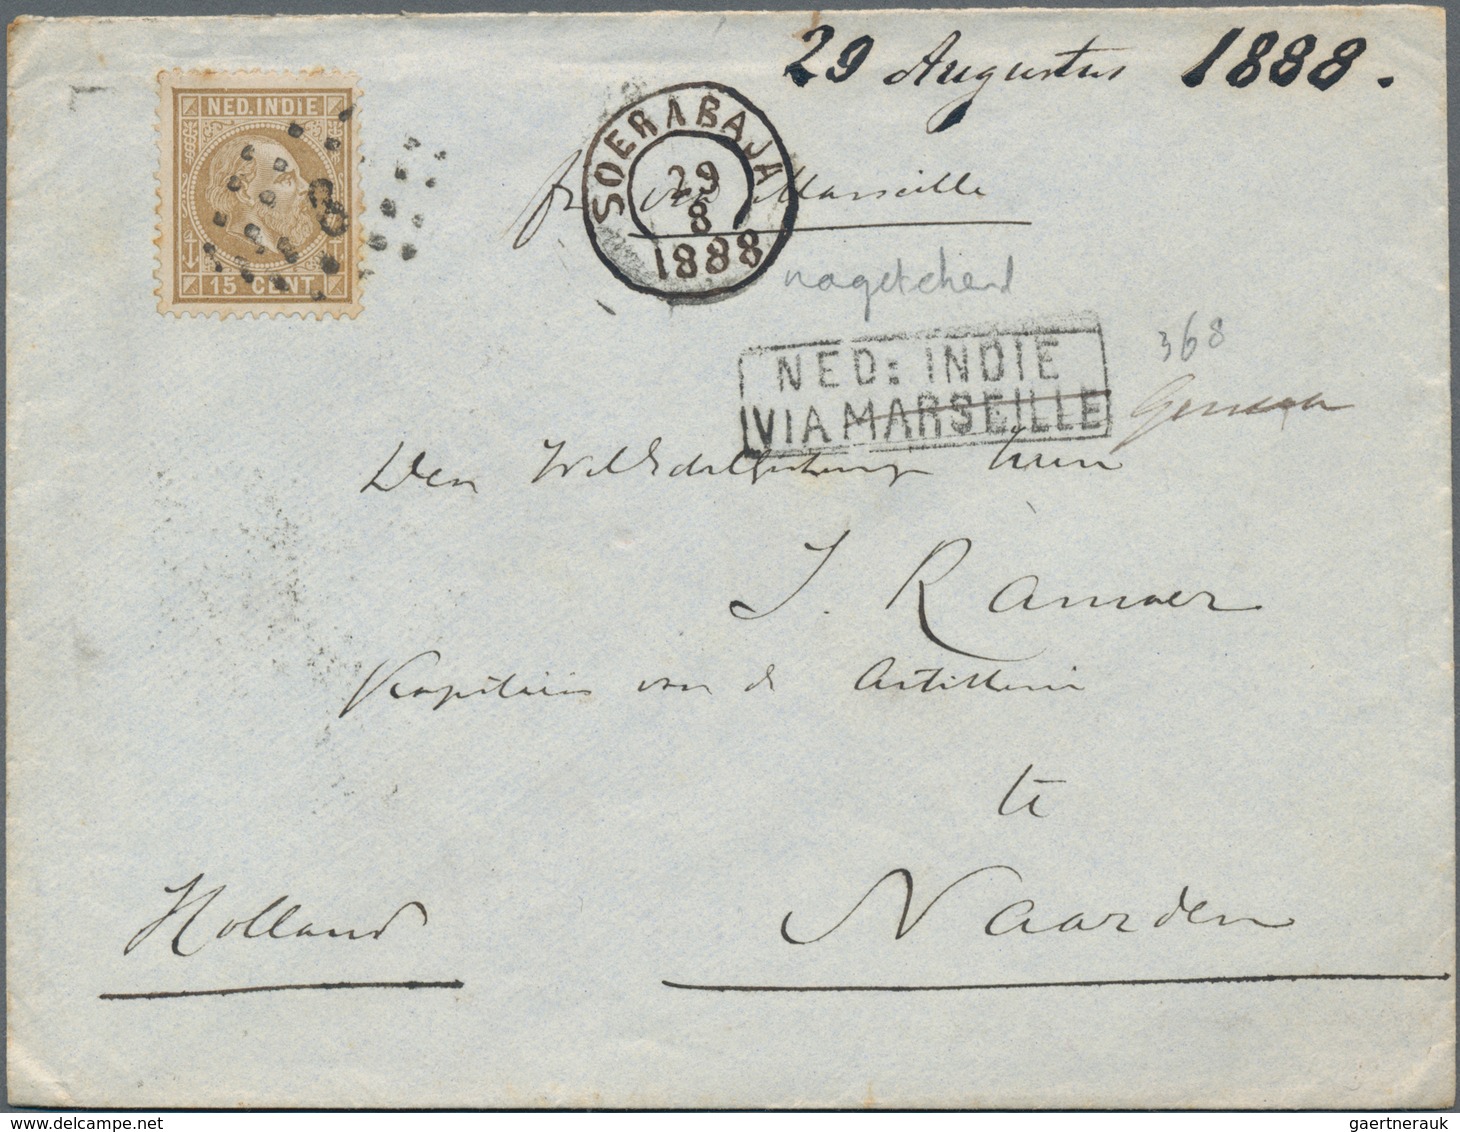 29 Augustus 1888.
NED. INDIE
15 CENT
8
SOERABAJA
29
8
1888
Marseille
nagetekend
368
NED: INDIE
VIA MARSEILLE
Genua
Den Heer
J. Ramaer
Kapitein van de Artillerie
te
Naarden
Holland
gaertnerauk